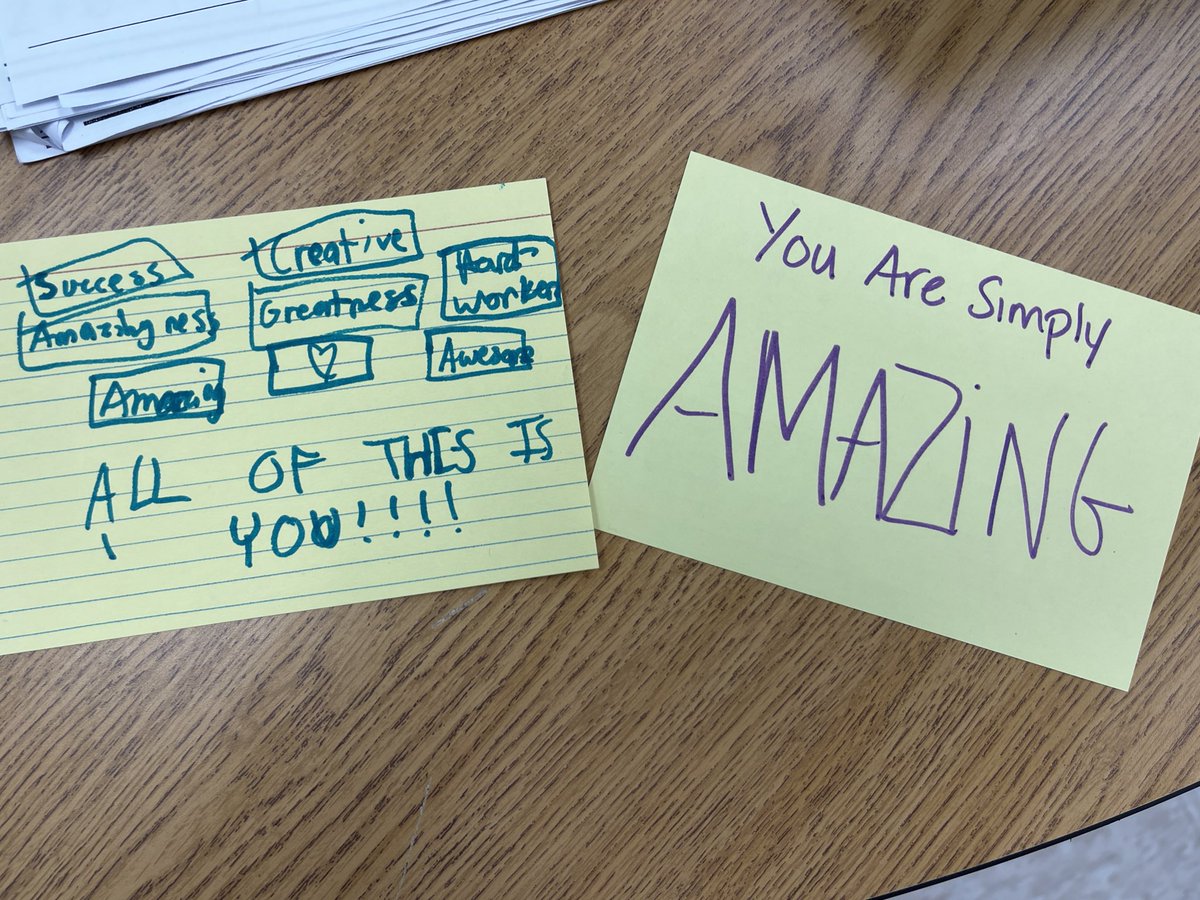 +Success
+Creative
Hard-
worker
Amazingness
Greatness
Amazing
Awesome
ALL OF THIS IS
YOU!!!!
You Are Simply
AMAZiNG